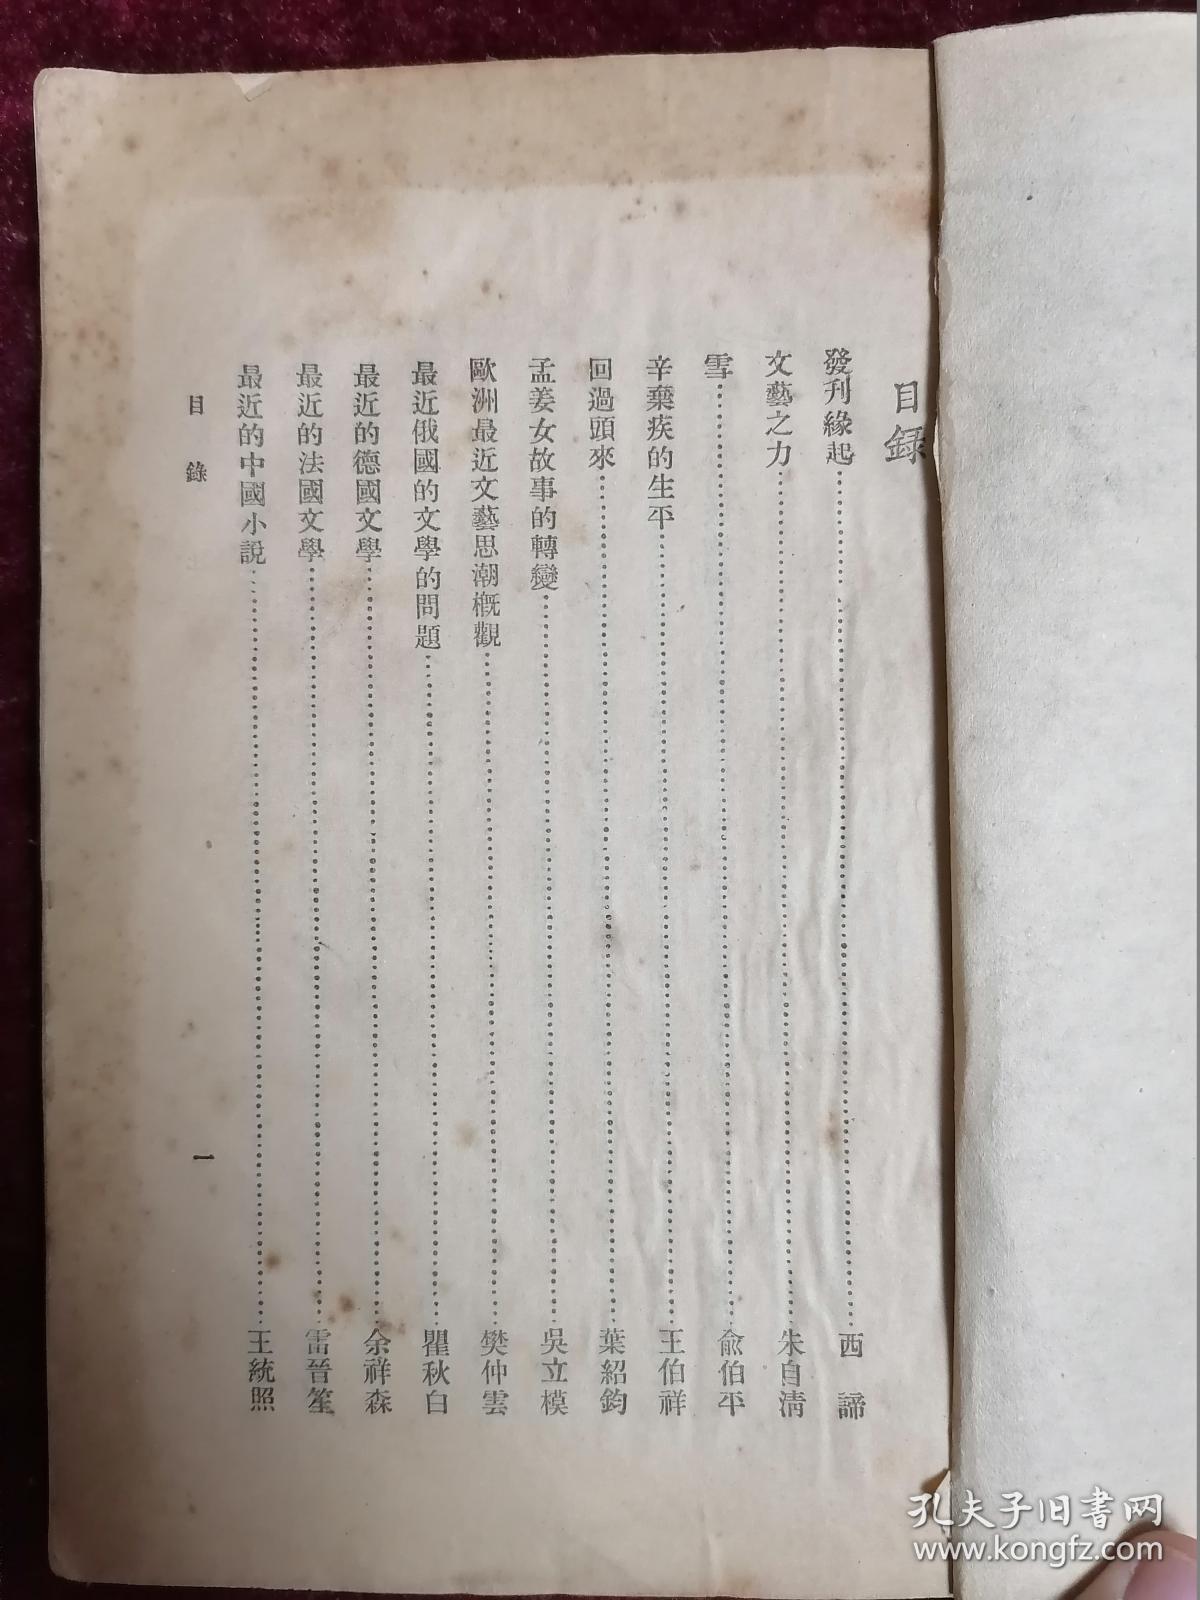 目録
發刊緣起……西諦
文藝之力……朱自清
雪……俞伯平
辛棄疾的生平……王伯祥
回過頭來……葉紹鈞
孟姜女故事的轉變……吳立模
歐洲最近文藝思潮概觀……樊仲雲
最近俄國的文學的問題……瞿秋白
最近的德國文學……余祥森
最近的法國文學……雷晉笙
最近的中國小說……王統照
目錄
一
孔夫子旧书网
www.kongfz.com